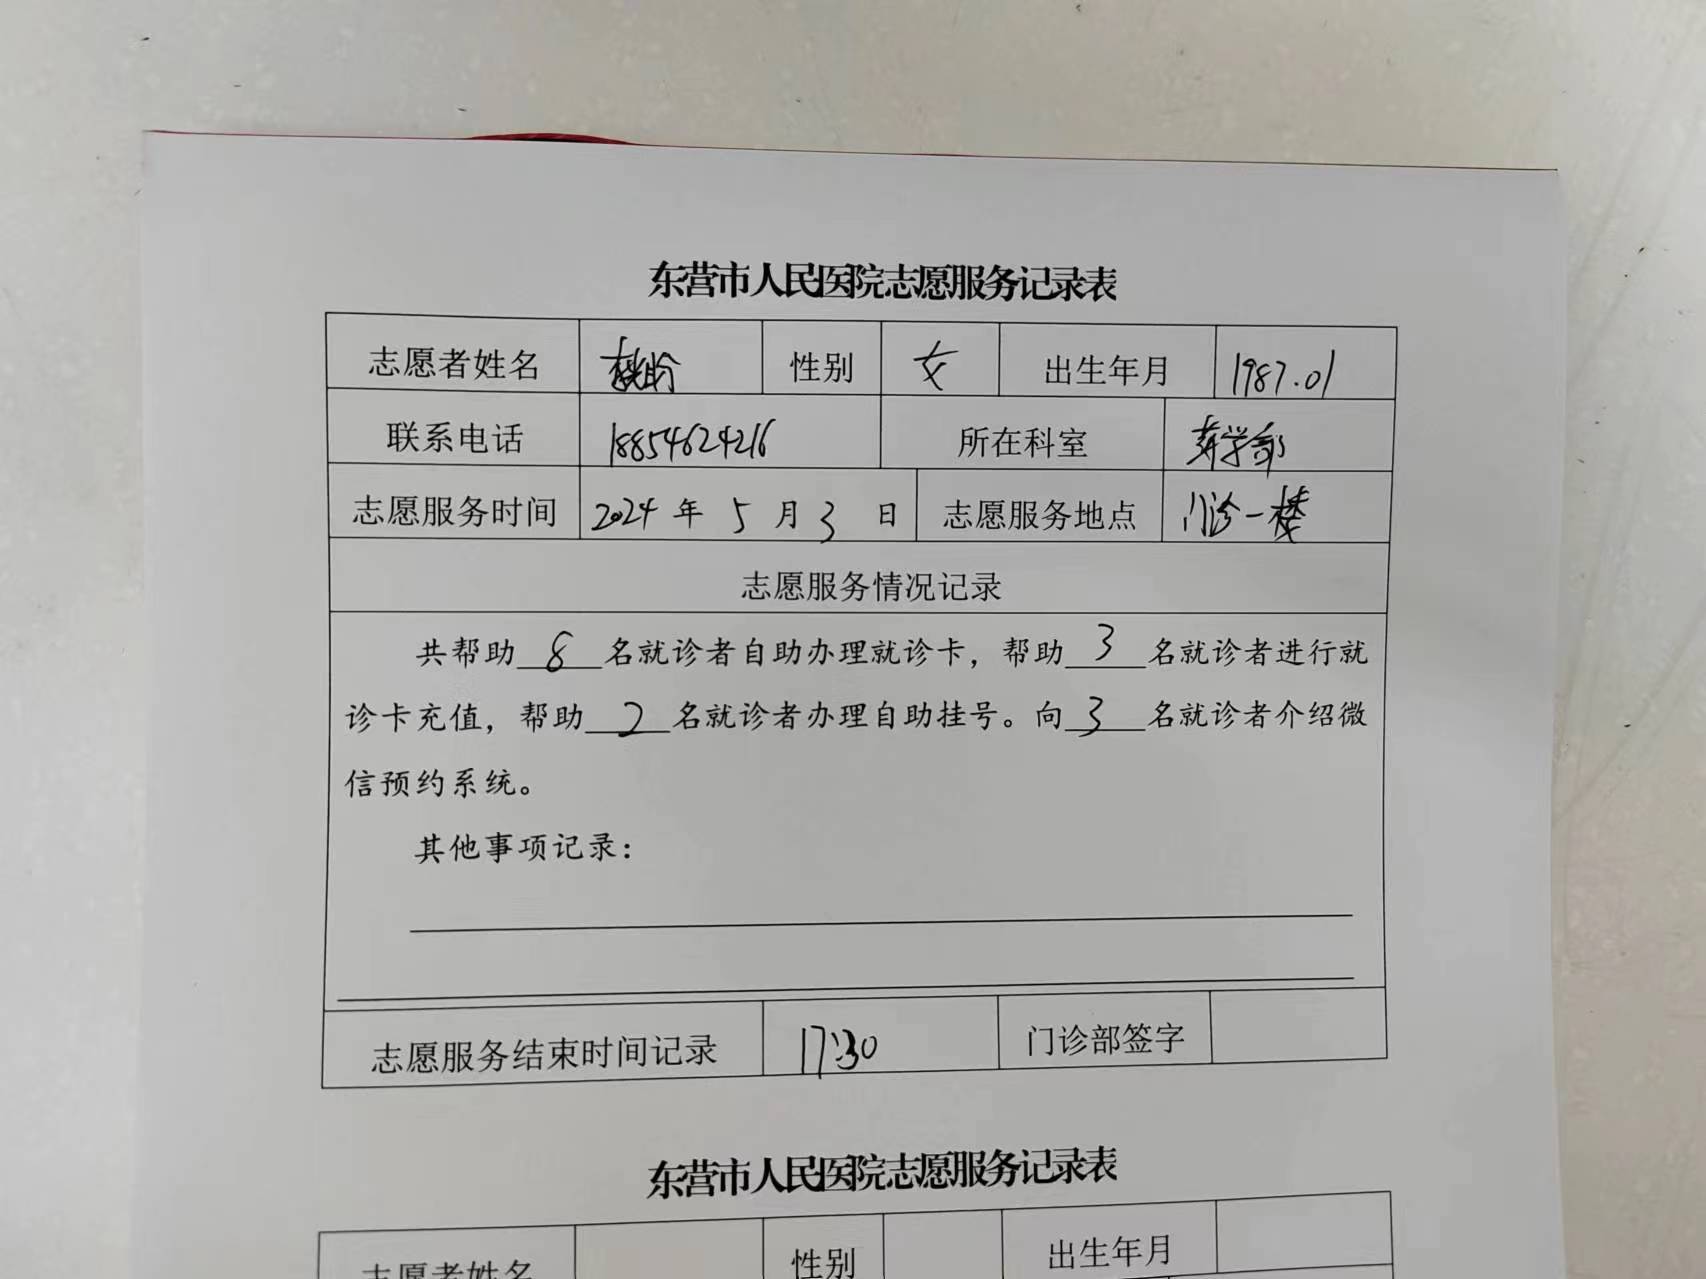 东营市人民医院志愿服务记录表
志愿者姓名 性别 女 出生年月 1987.01
联系电话 18854624216 所在科室 药学部
志愿服务时间 2024 年 5 月 3 日 志愿服务地点 门诊一楼
志愿服务情况记录
共帮助 8 名就诊者自助办理就诊卡，帮助 3 名就诊者进行就
诊卡充值，帮助 2 名就诊者办理自助挂号。向 3 名就诊者介绍微
信预约系统。
其他事项记录：
志愿服务结束时间记录 17:30 门诊部签字
东营市人民医院志愿服务记录表
志愿者姓名 性别 出生年月